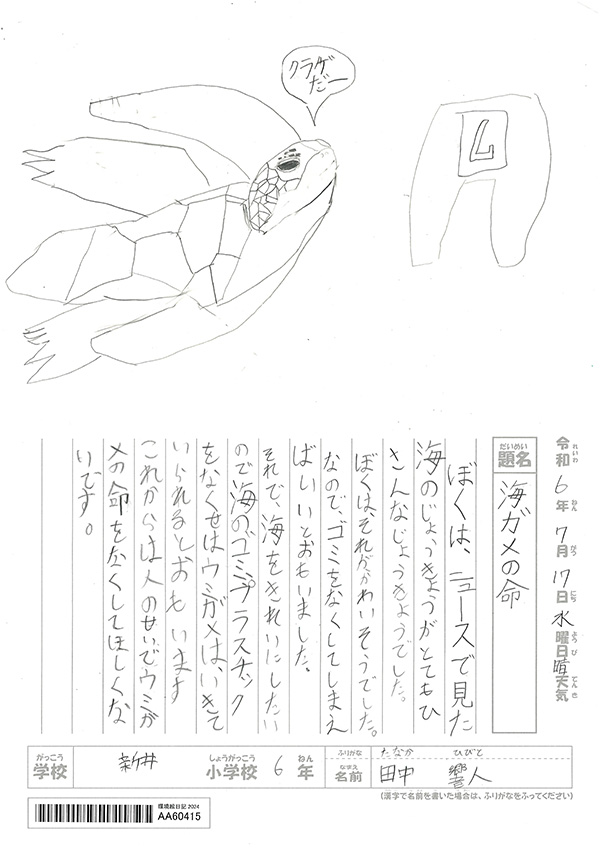 クラゲ
だー
L
令和6年7月17日水曜日晴天気
れいわ ねん がつ にち ようび てんき
だいめい
題名
海ガメの命
ぼくは、ニュースで見た
海のじょうきょうがとてもひ
さんなじょうきょうでした。
ぼくは、それがかわいそうでした。
なので、ゴミをなくしてしまえ
ばいいとおもいました。
それで、海をきれいにしたい
ので海のゴミプラスチック
をなくせばウミガメはいきて
いられるとおもいます
これからは人のせいでウミガ
メの命をなくしてほしくな
いです。
がっこう
学校
新井
しょうがっこう
小学校
6
ねん
年
ふりがな
たなか ひびと
なまえ
名前
田中 響人
(漢字で名前を書いた場合は、ふりがなをふってください)
環境絵日記2024
AA60415